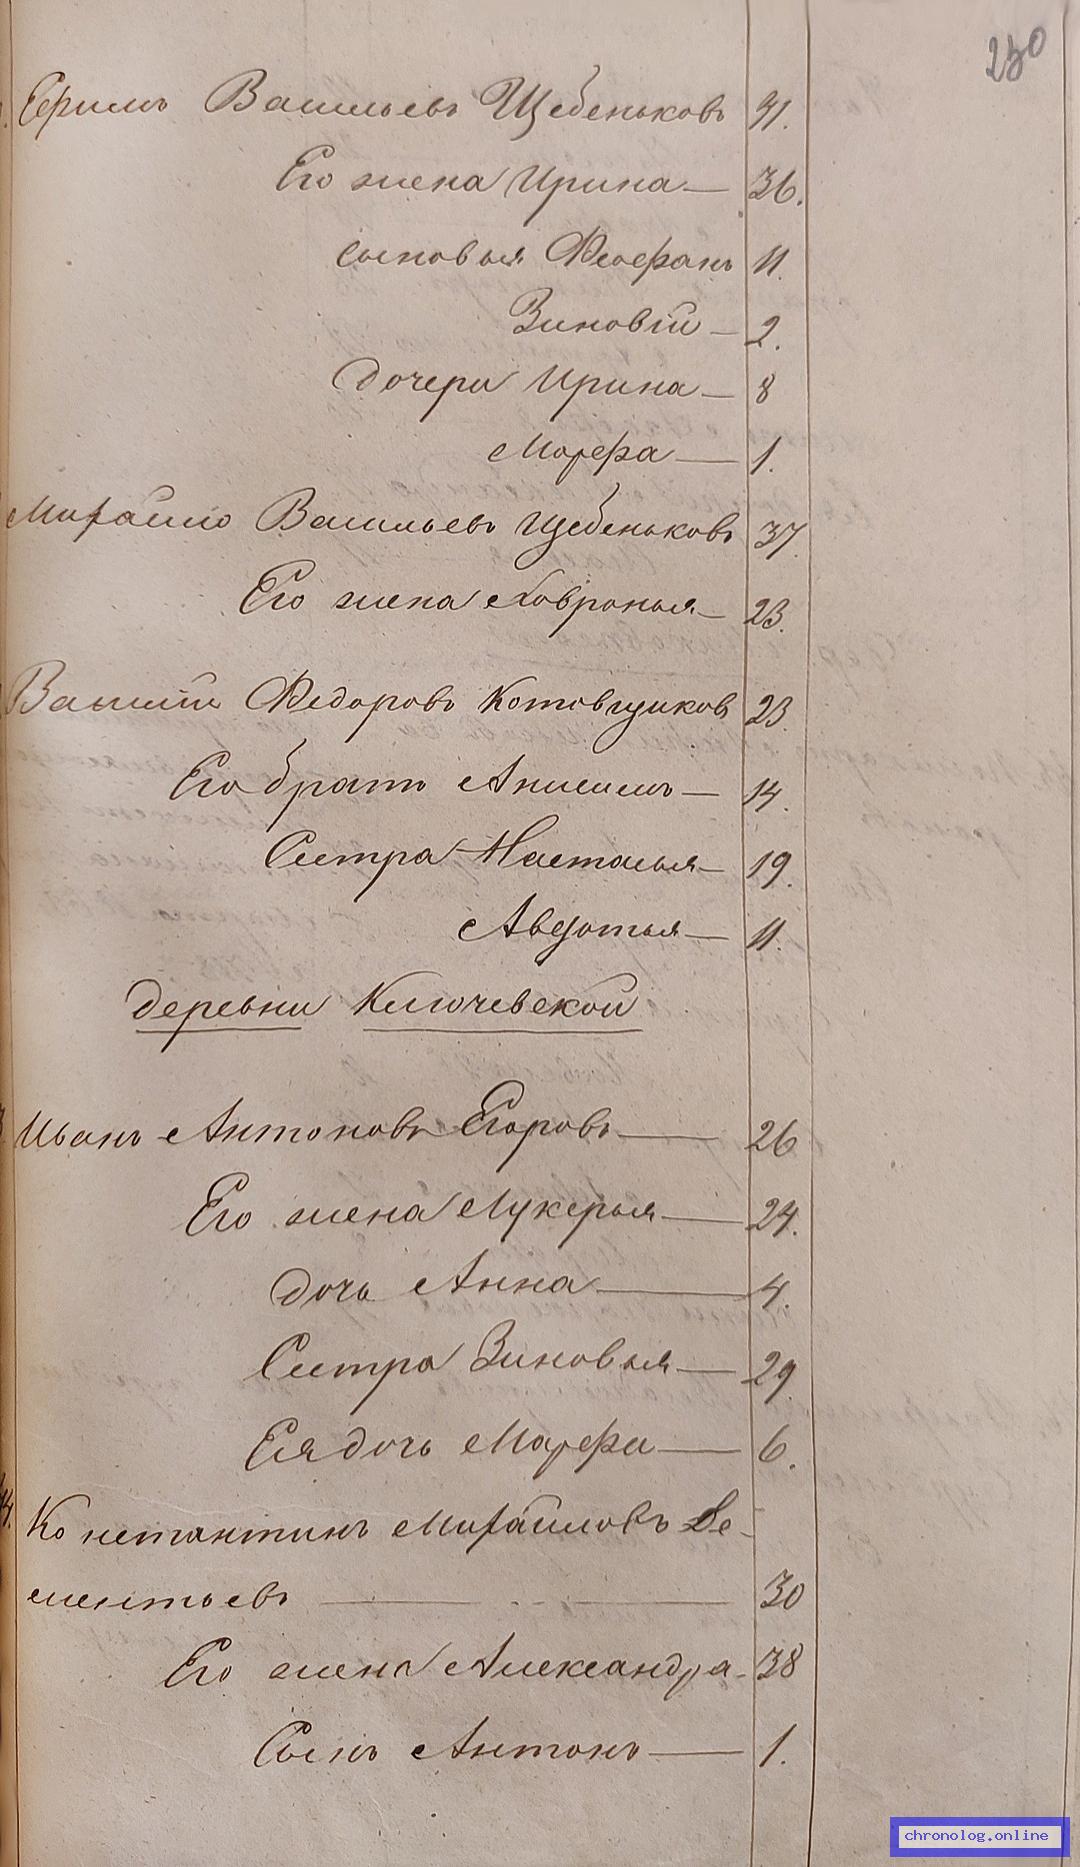 230
Ефимъ Васильевъ Щебеньковъ 41.
Его жена Ирина — 36.
сыновья Феофанъ 11.
Зиновiй — 2.
дочери Ирина — 8
Марфа — 1.
Михайло Васильевъ Щебеньковъ 37.
Его жена Ховронья — 23.
Василiй Федоровъ Котовщиковъ 23.
Его братъ Анисимъ — 14.
Сестра Настасья — 19.
Авдотья — 11.
деревни Ключевской
Иванъ Антоновъ Егоровъ — 26
Его жена Лукерья — 24.
дочь Анна — 4.
Сестра Зиновья — 29.
Ея дочь Марфа — 6.
Константинъ Михайловъ Де-
ментьевъ — 30
Его жена Александра — 38
Сынъ Антонъ — 1.
chronolog.online